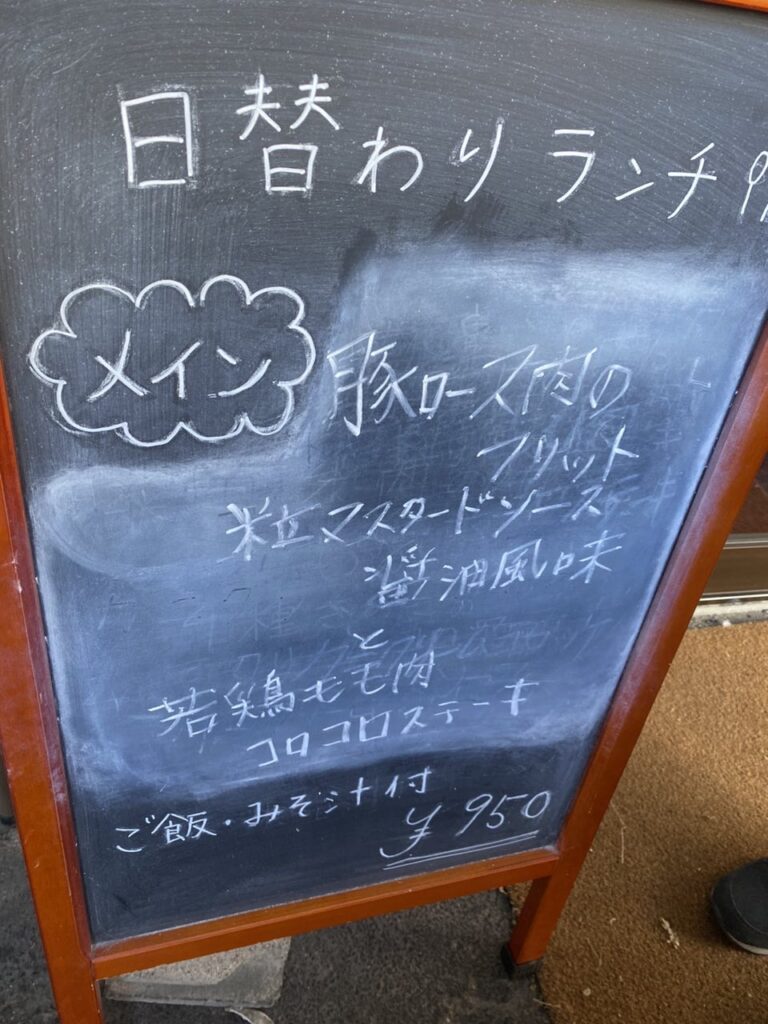 日替わりランチ
メイン
豚ロース肉の
フリット
粒マスタードソース
醤油風味
と
若鶏モモ肉
コロコロステーキ
ご飯・みそ汁付
¥950